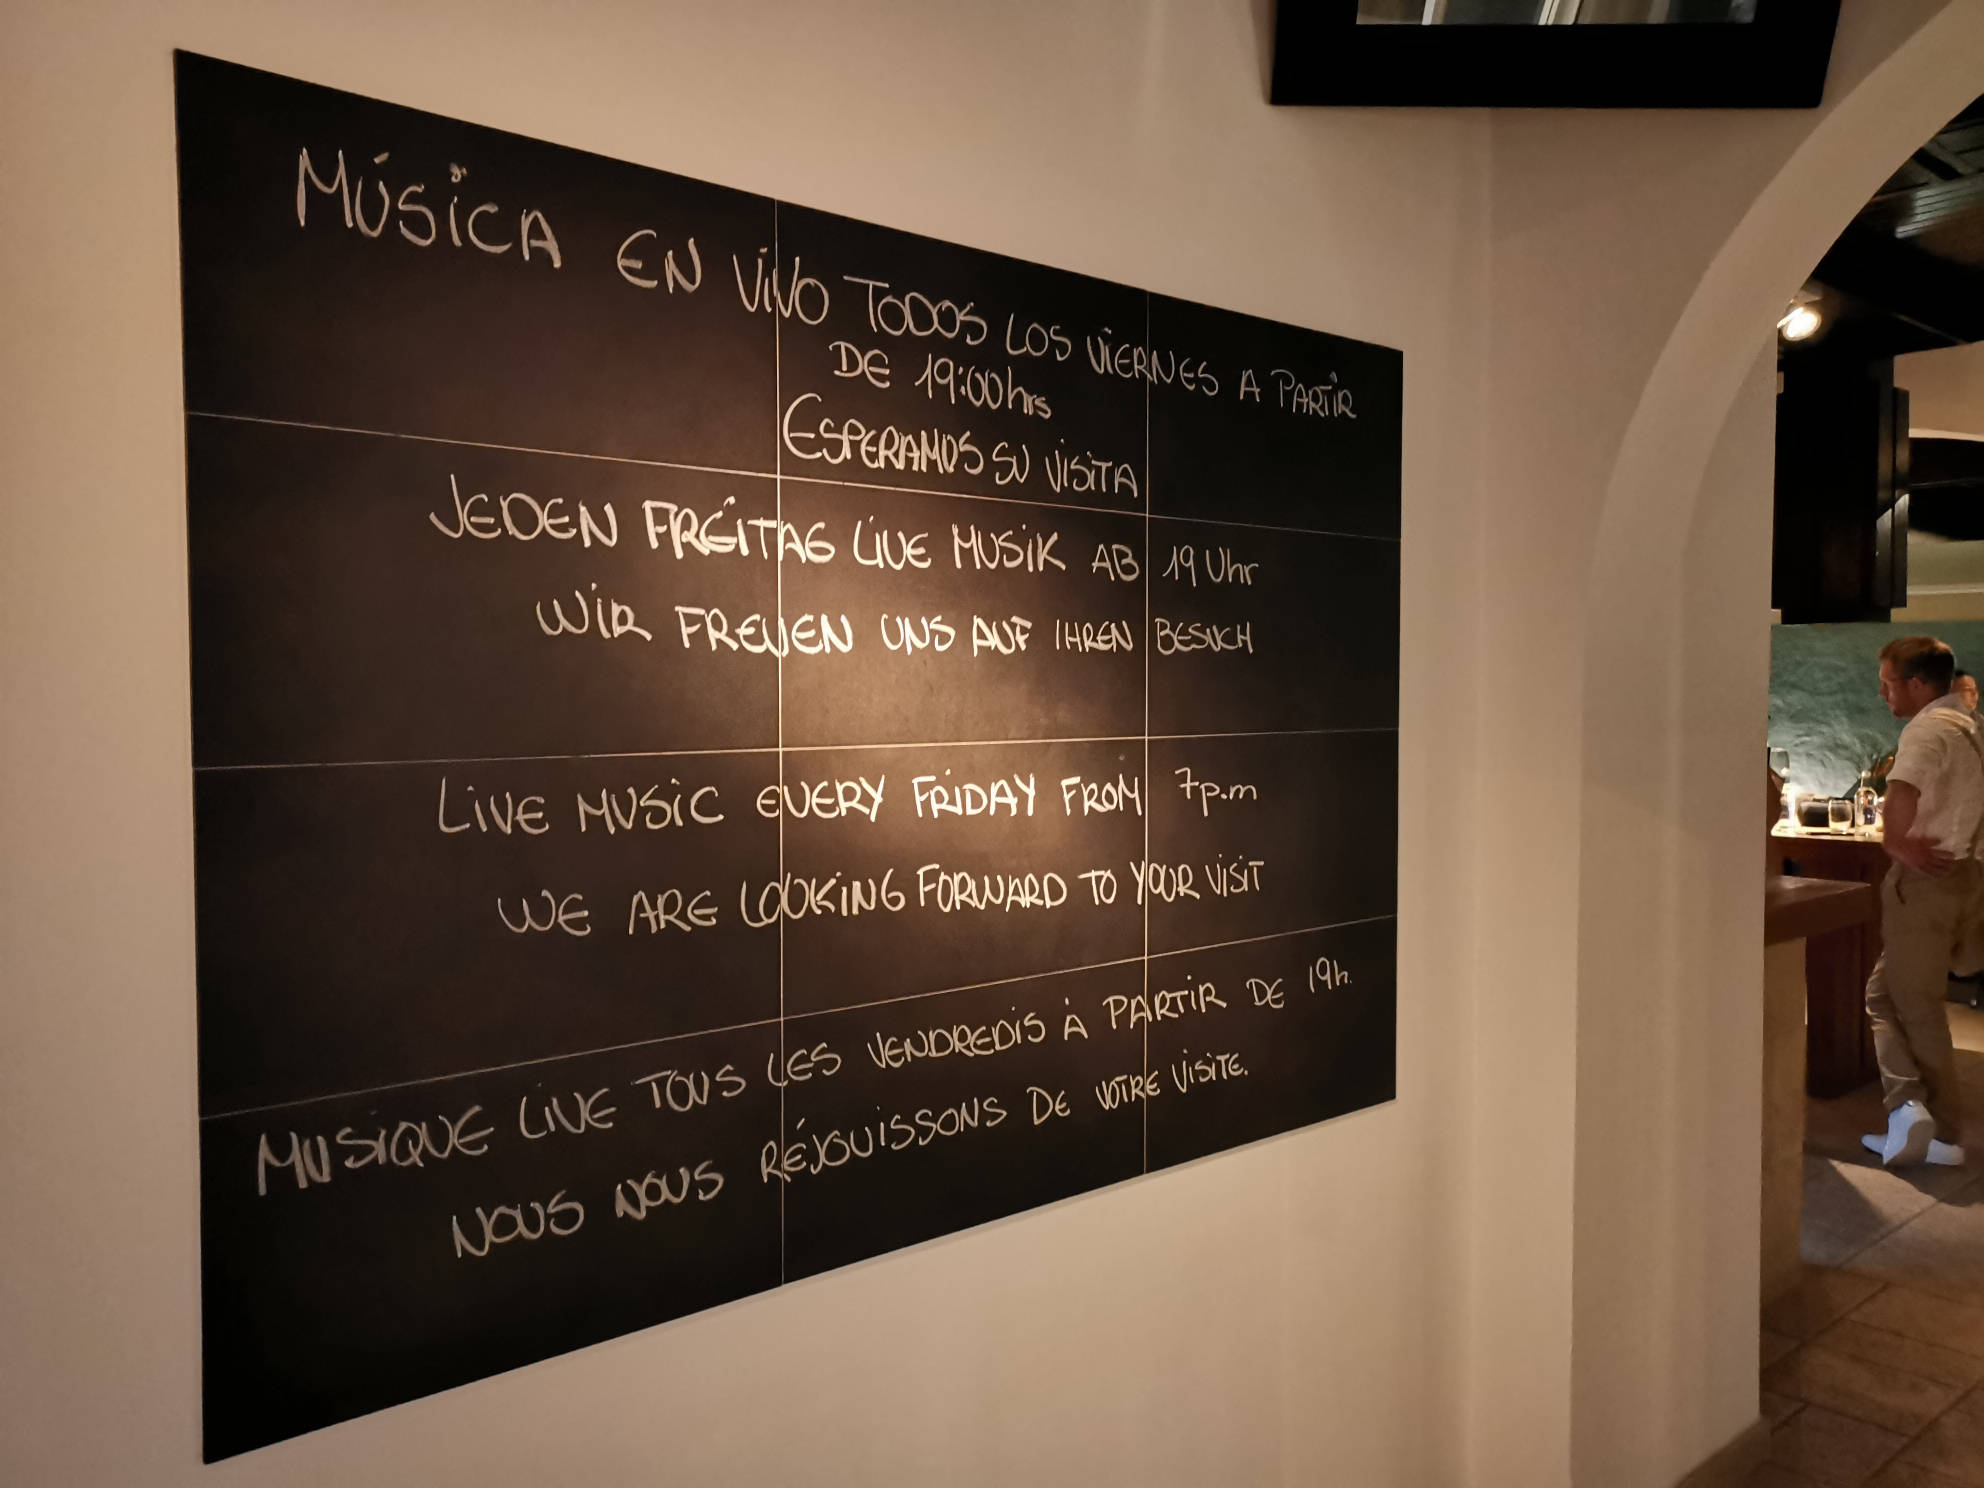 MÚSICA EN VIVO TODOS LOS VIERNES A PARTIR
DE 19:00hrs
ESPERAMOS SU VISITA
JEDEN FREITAG LIVE MUSIK AB 19 Uhr
WIR FREUEN UNS AUF IHREN BESUCH
LIVE MUSIC EVERY FRIDAY FROM 7p.m
WE ARE LOOKING FORWARD TO YOUR VISIT
MUSIQUE LIVE TOUS LES VENDREDIS À PARTIR DE 19h.
NOUS NOUS RÉJOUISSONS DE VOTRE VISITE.